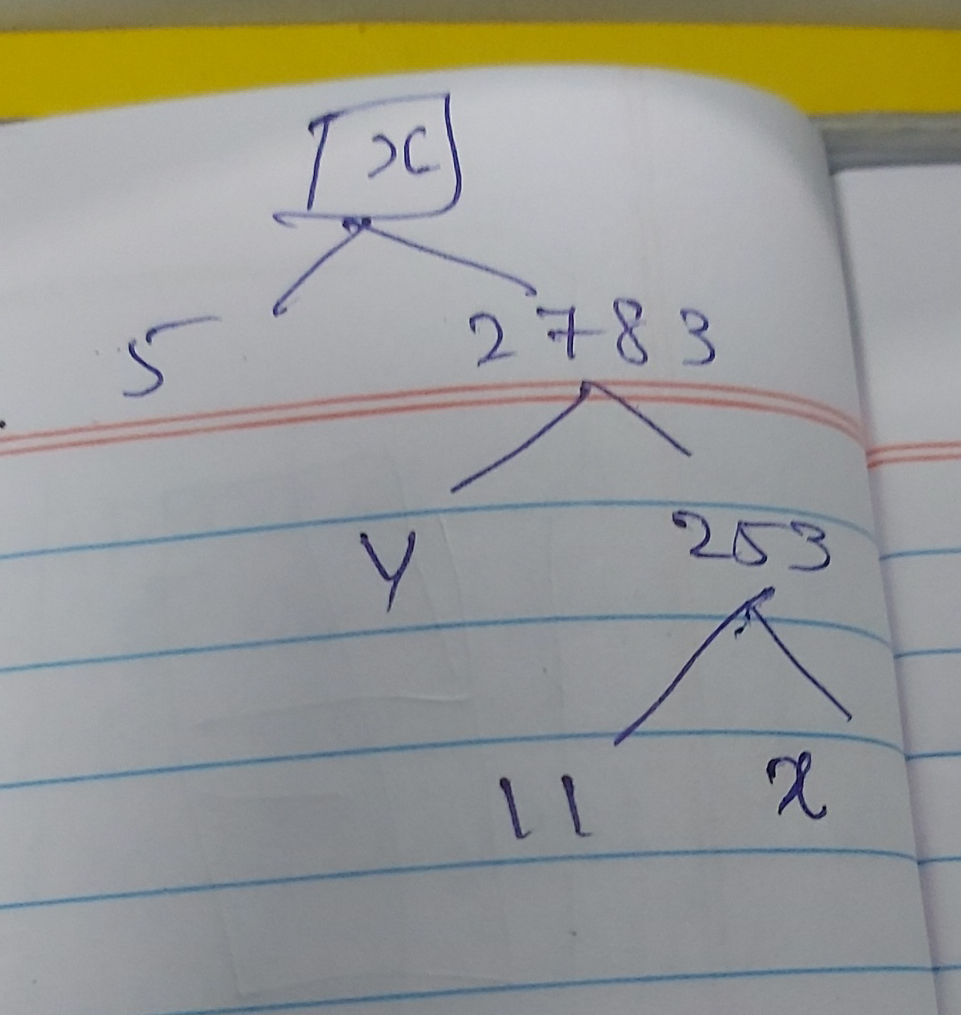 x
5 2783
y 253
11 x